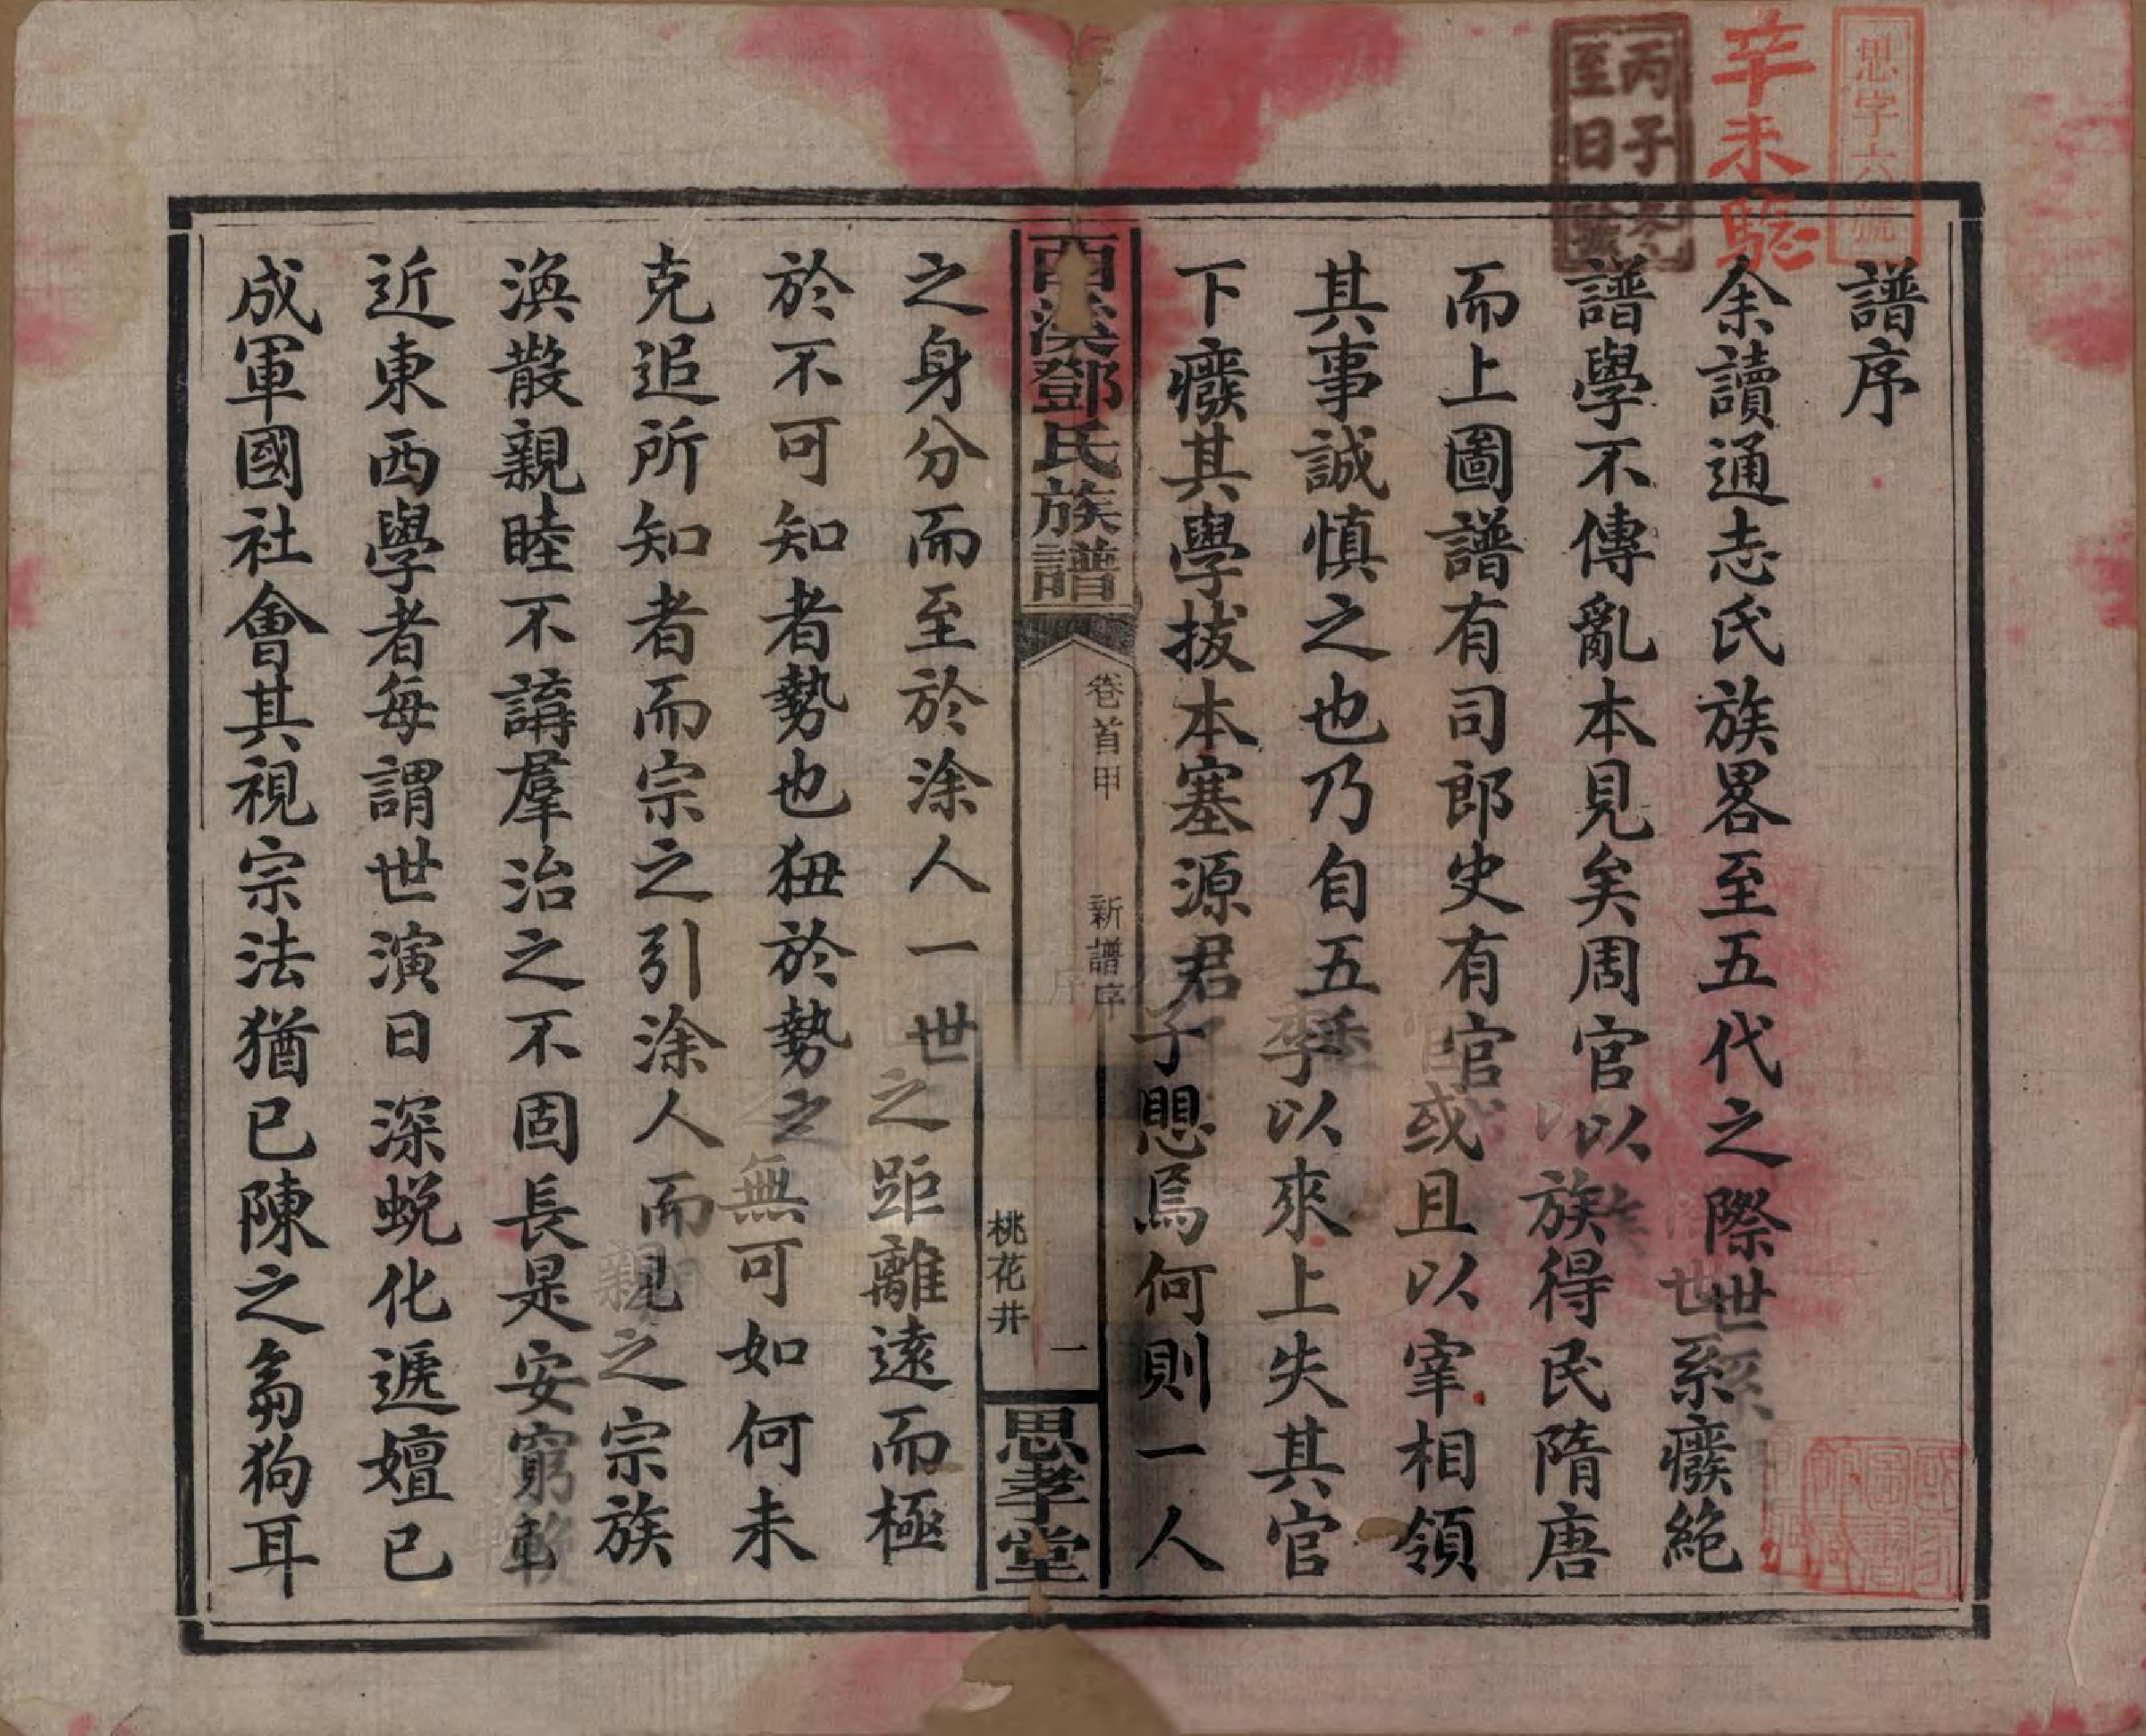 思字六號
辛未騐
丙子冬
至日
譜序
余讀通志氏族畧至五代之際世系癈絶
譜學不傳亂本見矣周官以族得民隋唐
而上圖譜有司郎史有官或且以宰相領
其事誠慎之也乃自五季以來上失其官
下癈其學拔本塞源君子愳焉何則一人
西溪鄧氏族譜
卷首甲 新譜序
桃花井
一
思孝堂
之身分而至於涂人一世之距離遠而極
於不可知者勢也狃於勢之無可如何未
克追所知者而宗之引涂人而親之宗族
渙散親睦不講羣治之不固長是安窮輓
近東西學者每謂世演日深蜕化遞嬗已
成軍國社會其視宗法猶已陳之芻狗耳